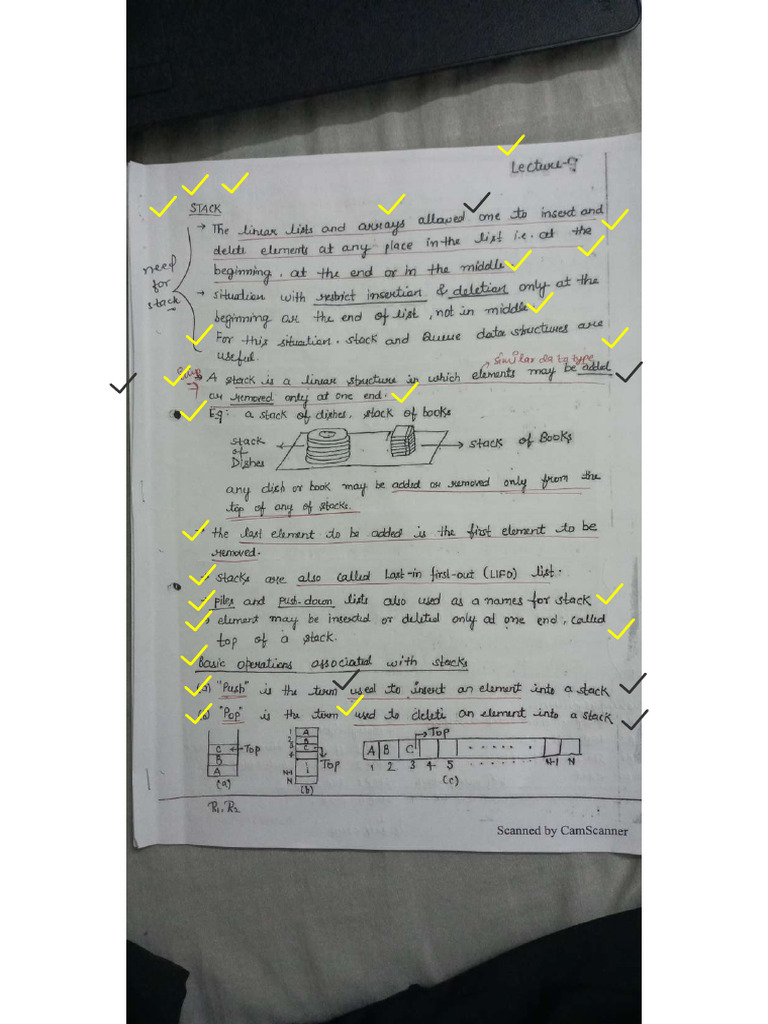 Lecture-9
STACK
→ The linear lists and arrays allowed one to insert and
delete elements at any place in the list i.e. at the
beginning, at the end or in the middle.
need
for
stack
→ situation with restrict insertion & deletion only at the
beginning or the end of list, not in middle.
For this situation, stack and Queue data structures are
useful.
similar data type
A stack is a linear structure in which elements may be added
or removed only at one end.
Eg: a stack of dishes, stack of books
stack
of
Dishes
→ stack of Books
any dish or book may be added or removed only from the
top of any of stacks.
the last element to be added is the first element to be
removed.
stacks are also called Last-in first-out (LIFO) list.
piles and push-down lists also used as a names for stack
element may be inserted or deleted only at one end, called
top of a stack.
Basic operations associated with stacks
(a) "Push" is the term used to insert an element into a stack
(b) "Pop" is the term used to delete an element into a stack
C ← Top
B
A
(a)
1 A
2 B
3 C
4
Top
N-1
N
(b)
Top
A B C
1 2 3 4 5 ...... N-1 N
(c)
R1, R2
Scanned by CamScanner